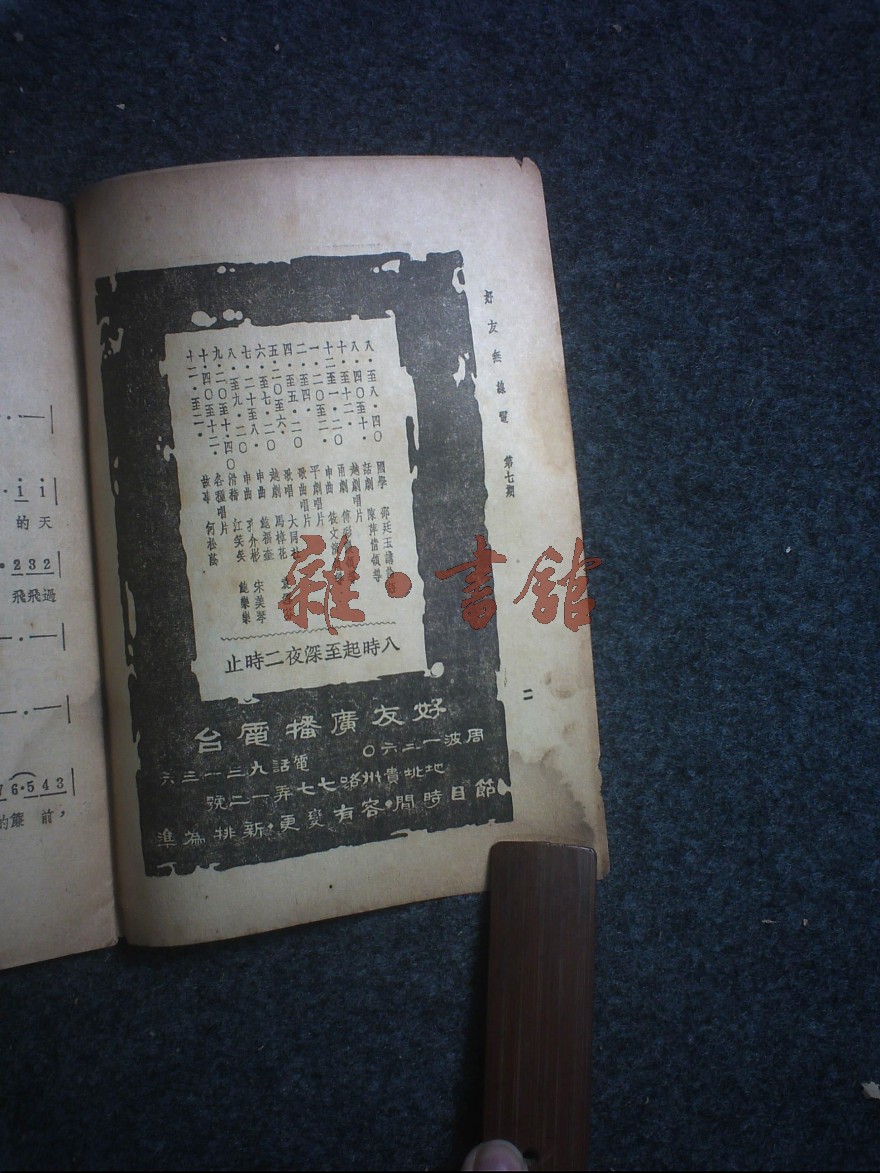 好友無線電 第七期
八·至八·四〇 國學 邵廷玉講
八·四〇至十· 話劇 陳萍倩領導
十·至十二· 越劇唱片
十二·至一·二〇 甬劇
一·二〇至二· 申曲 筱文濱
二·至四· 平劇唱片
四·至五·二〇 歌曲唱片
五·二〇至六· 歌唱 大同社
六·至七·二〇 越劇 馬樟花
七·二十至八· 申曲
八·至九·二〇 申曲 孔介彬 宋美琴
九·二〇至十·四〇 滑稽 江笑笑 鮑樂樂
十·四〇至十二· 各種唱片
十二·至二· 故事 何松
八時起至深夜二時止
好友廣播電台
周波一三六〇 電話九三一三六
地址貴州路七七弄一二號
節目時間·容有變更·新排為準
二
雜·書館
的 天
2 3 2
飛飛過
7 6·5 4 3
的簾 前，